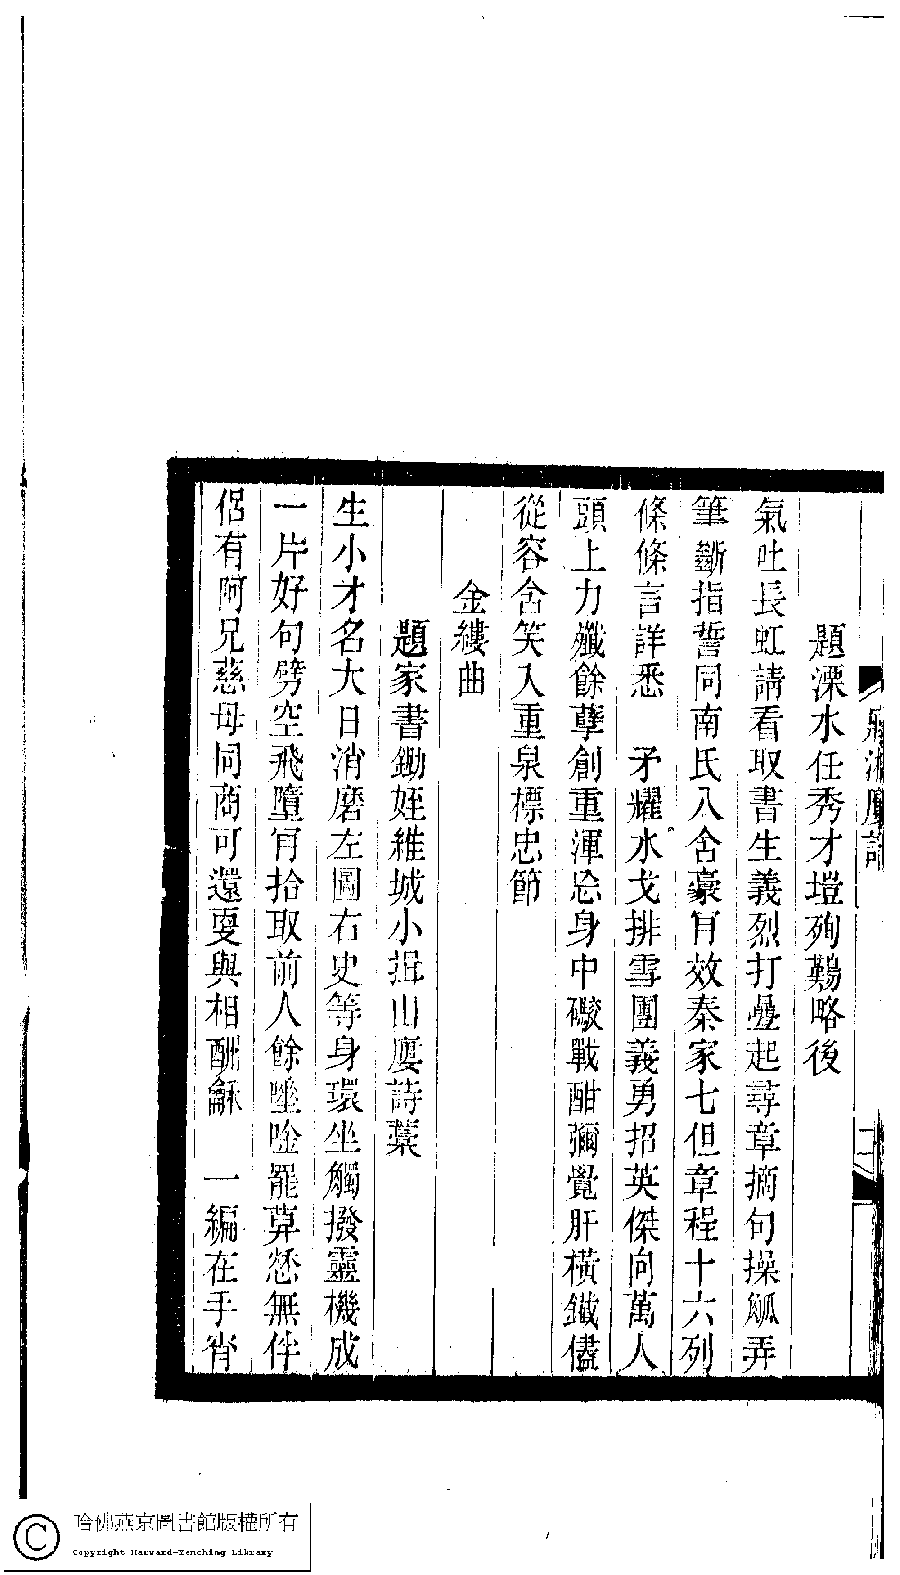 題溧水任秀才塏殉難略後
氣吐長虹請看取書生義烈打疊起尋章摘句操觚弄
筆斷指誓同南氏八含豪肎效秦家七但章程十六列
條條言詳悉　矛耀水戈排雪團義勇招英傑向萬人
頭上力殲餘孽創重渾忘身中礮戰酣彌覺肝橫鐵儘
從容含笑入重泉標忠節
金縷曲
題家書鋤姪維城小揖山廔詩藁
生小才名大日消磨左圖右史等身環坐觸撥靈機成
一片好句劈空飛墮肎拾取前人餘唾唫罷莫愁無伴
侶有阿兄慈母同商可還要與相酬龢　一編在手宵
哈佛燕京圖書館版權所有
Copyright Harvard-Yenching Library